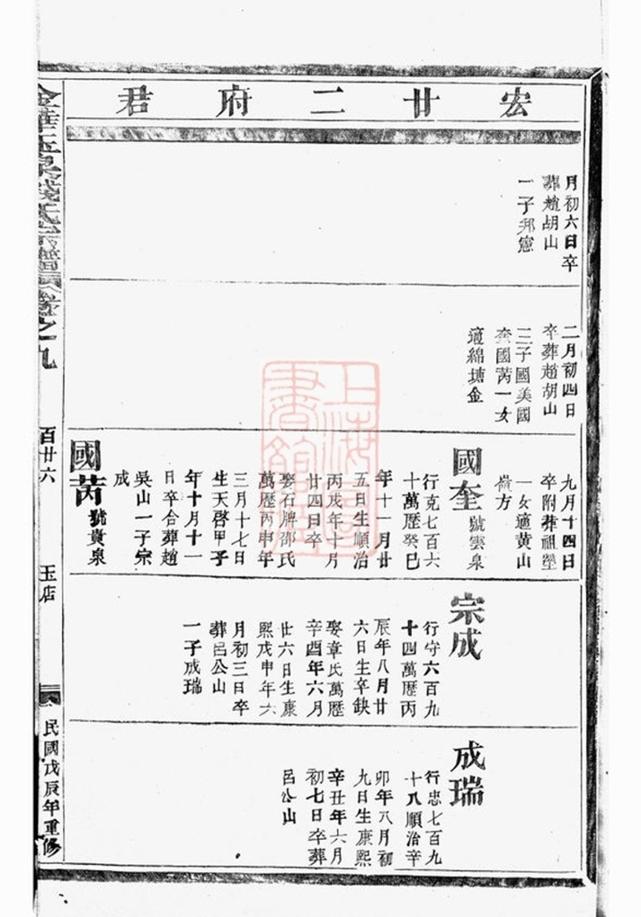 宏廿二府君
月初六日卒
葬趙胡山
一子邦憲
二月初四日
卒葬趙胡山
三子國美國
奎國芮一女
適綿塘金
九月十四日
卒附葬祖塋
一女適黃山
嚴方
國奎號雲泉
行克七百六
十萬歷癸巳
年十一月廿
五日生順治
丙戌年十月
廿四日卒
娶石牌邵氏
萬歷丙申年
三月十七日
生天啓甲子
年十月十一
日卒合葬趙
吳山一子宗
成
國芮號貴泉
宗成
行守六百九
十四萬歷丙
辰年八月廿
六日生卒缺
娶章氏萬歷
辛酉年六月
廿六日生康
熙戊申年六
月初三日卒
葬呂公山
一子成瑞
成瑞
行忠七百九
十八順治辛
卯年八月初
九日生康熙
辛丑年六月
初七日卒葬
呂公山
金華玉泉錢氏宗譜卷之九
百廿六
玉店
民國戊辰年重修
上海圖書館藏